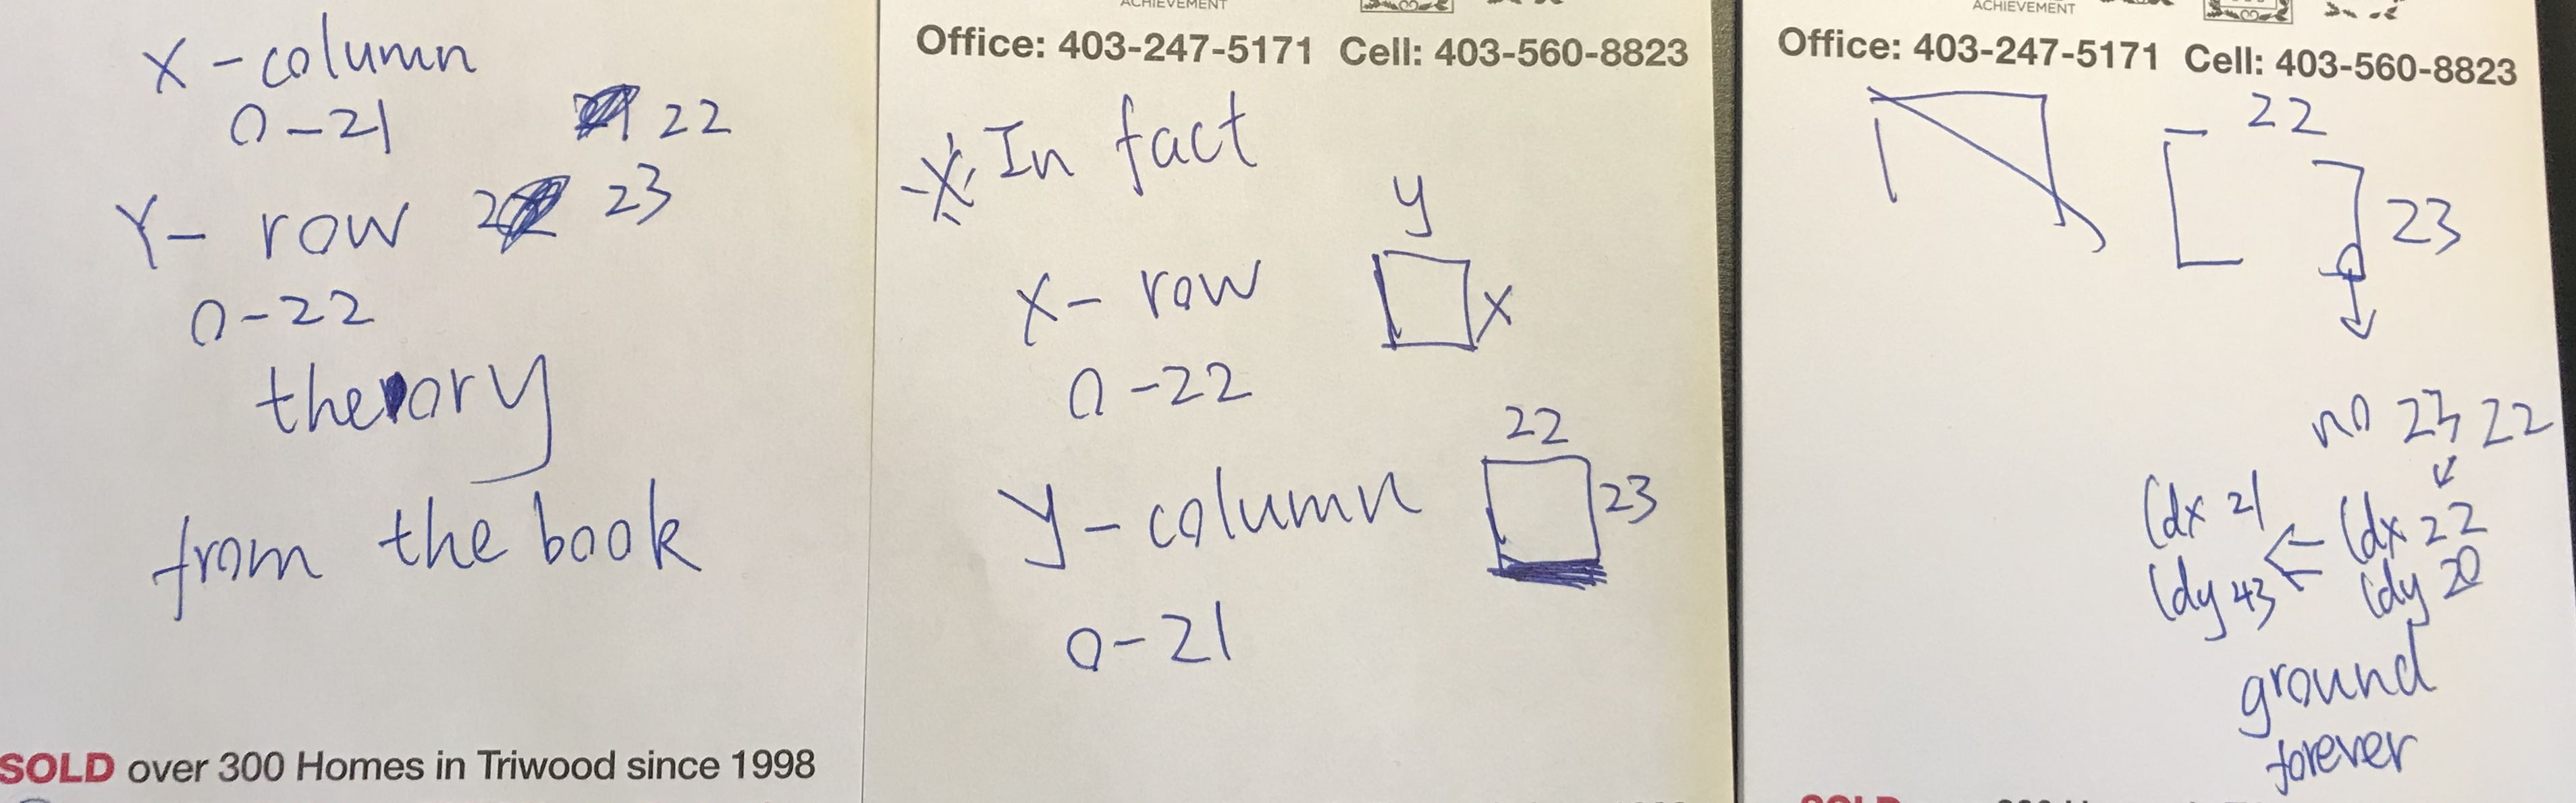 X - column
0 - 21 22
Y - row 23
0 - 22
theory
from the book
SOLD over 300 Homes in Triwood since 1998
ACHIEVEMENT
Office: 403-247-5171 Cell: 403-560-8823
In fact
y
X - row
x
0 - 22
22
y - column
23
0 - 21
ACHIEVEMENT
Office: 403-247-5171 Cell: 403-560-8823
22
23
no 23 22
ldx 21
ldx 22
ldy 43
ldy 20
ground
forever